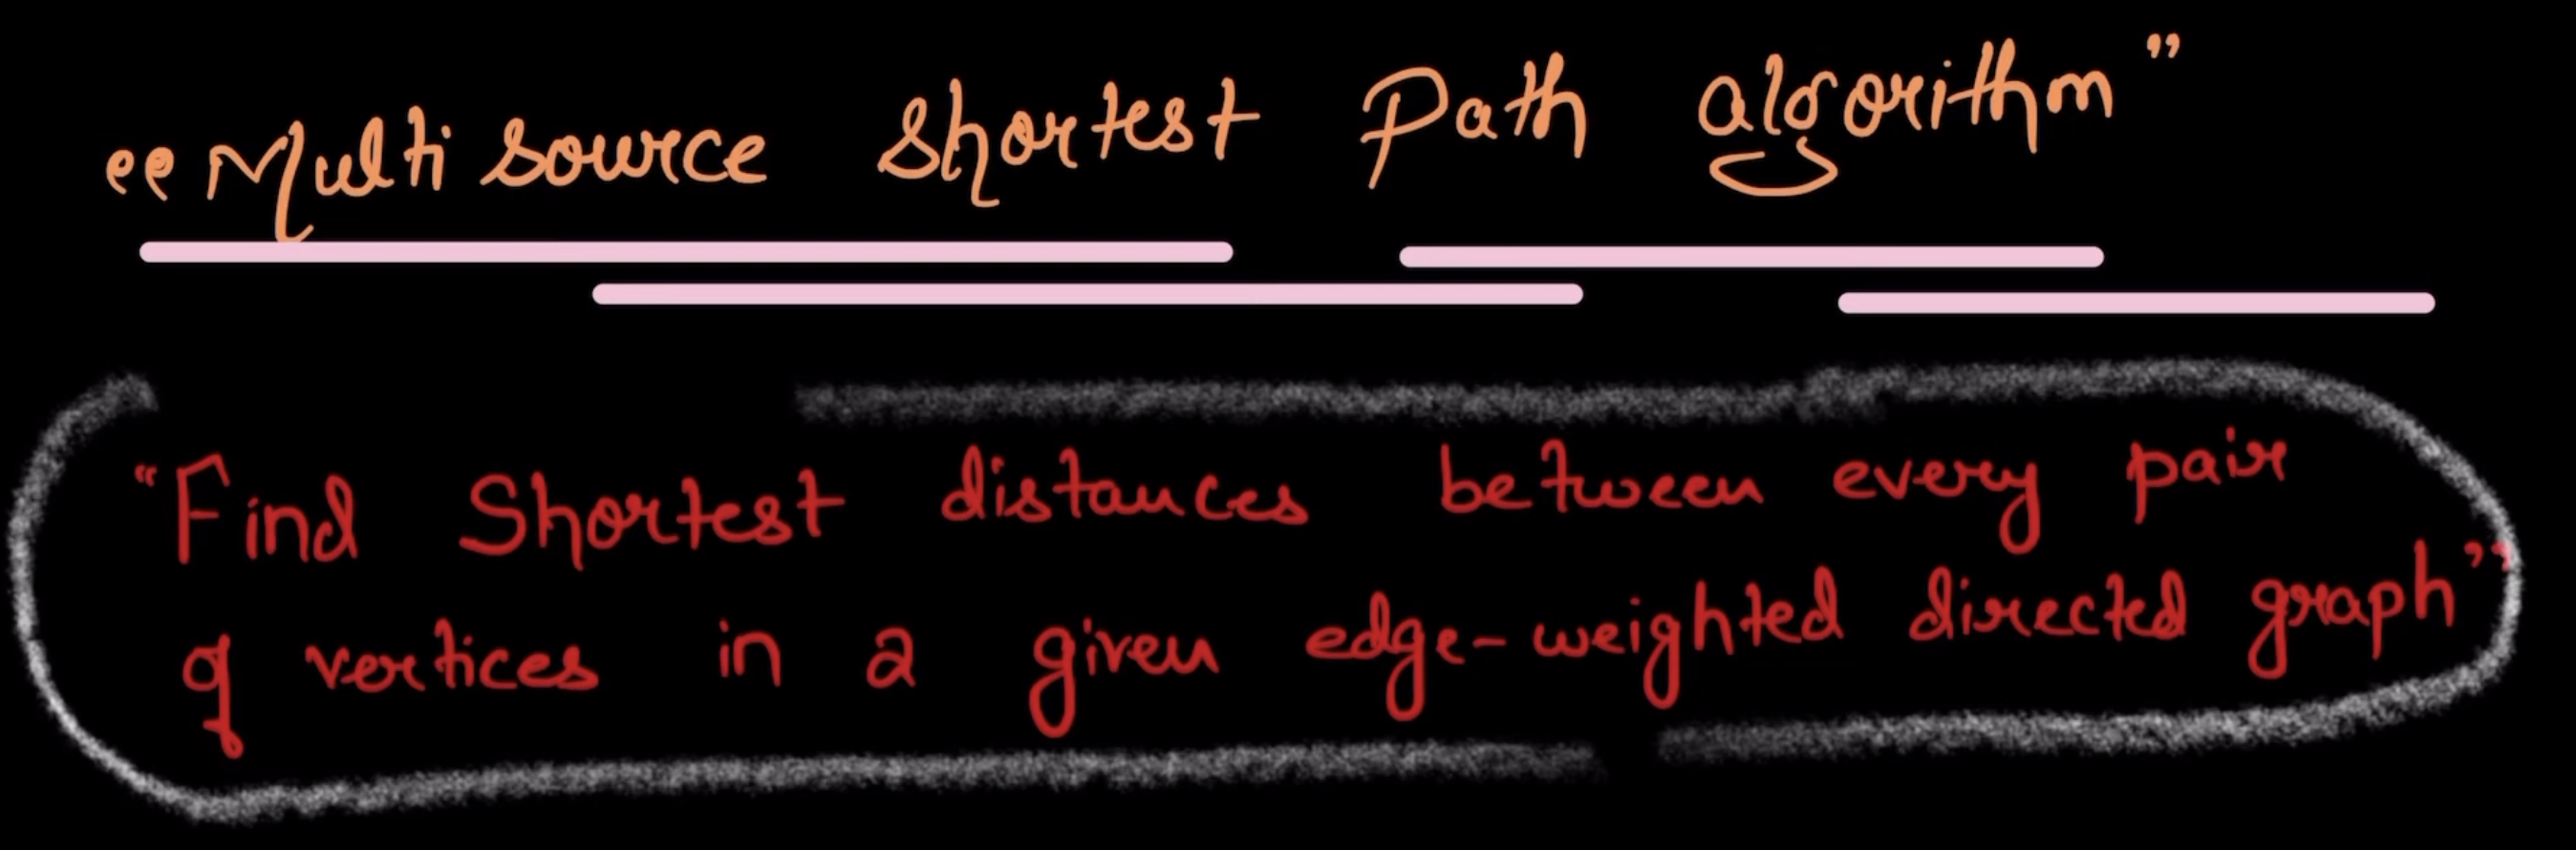 "Multi source shortest Path algorithm"
"Find Shortest distances between every pair
of vertices in a given edge-weighted directed graph"